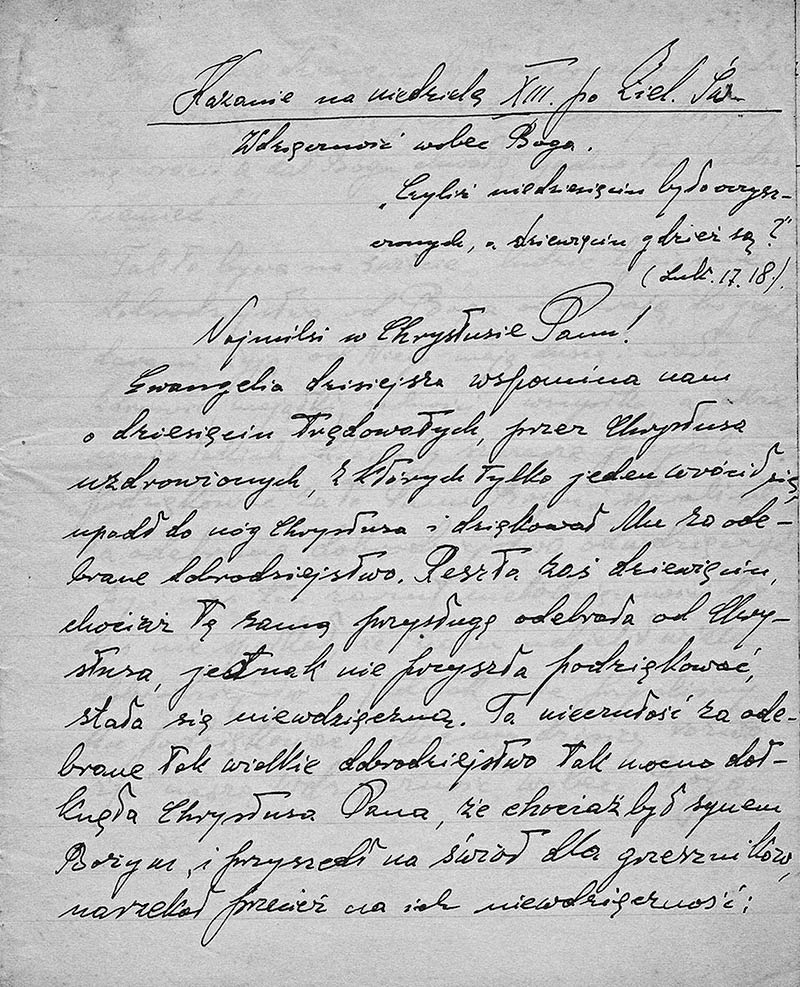 Kazanie na niedzielę XIII. po Ziel. Św.
Wdzięczność wobec Boga.
"Czyliż niedziesięciu było oczysz-
czonych, a dziewięciu gdzież są?"
(Łuk. 17. 18.).
Najmilsi w Chrystusie Panu!
Ewangelia dzisiejsza wspomina nam
o dziesięciu trędowatych, przez Chrystusa
uzdrowionych, z których tylko jeden wrócił się,
upadł do nóg Chrystusa i dziękował Mu za ode-
brane dobrodziejstwo. Reszta zaś dziewięciu,
chociaż tę samą przysługę odebrała od Chry-
stusa, jednak nie przyszła podziękować,
stała się niewdzięczną. Ta nieczułość za ode-
brane tak wielkie dobrodziejstwo tak mocno dot-
knęła Chrystusa Pana, że chociaż był synem
Bożym, i przyszedł na świat dla grzeszników,
narzekał przecież na ich niewdzięczność: